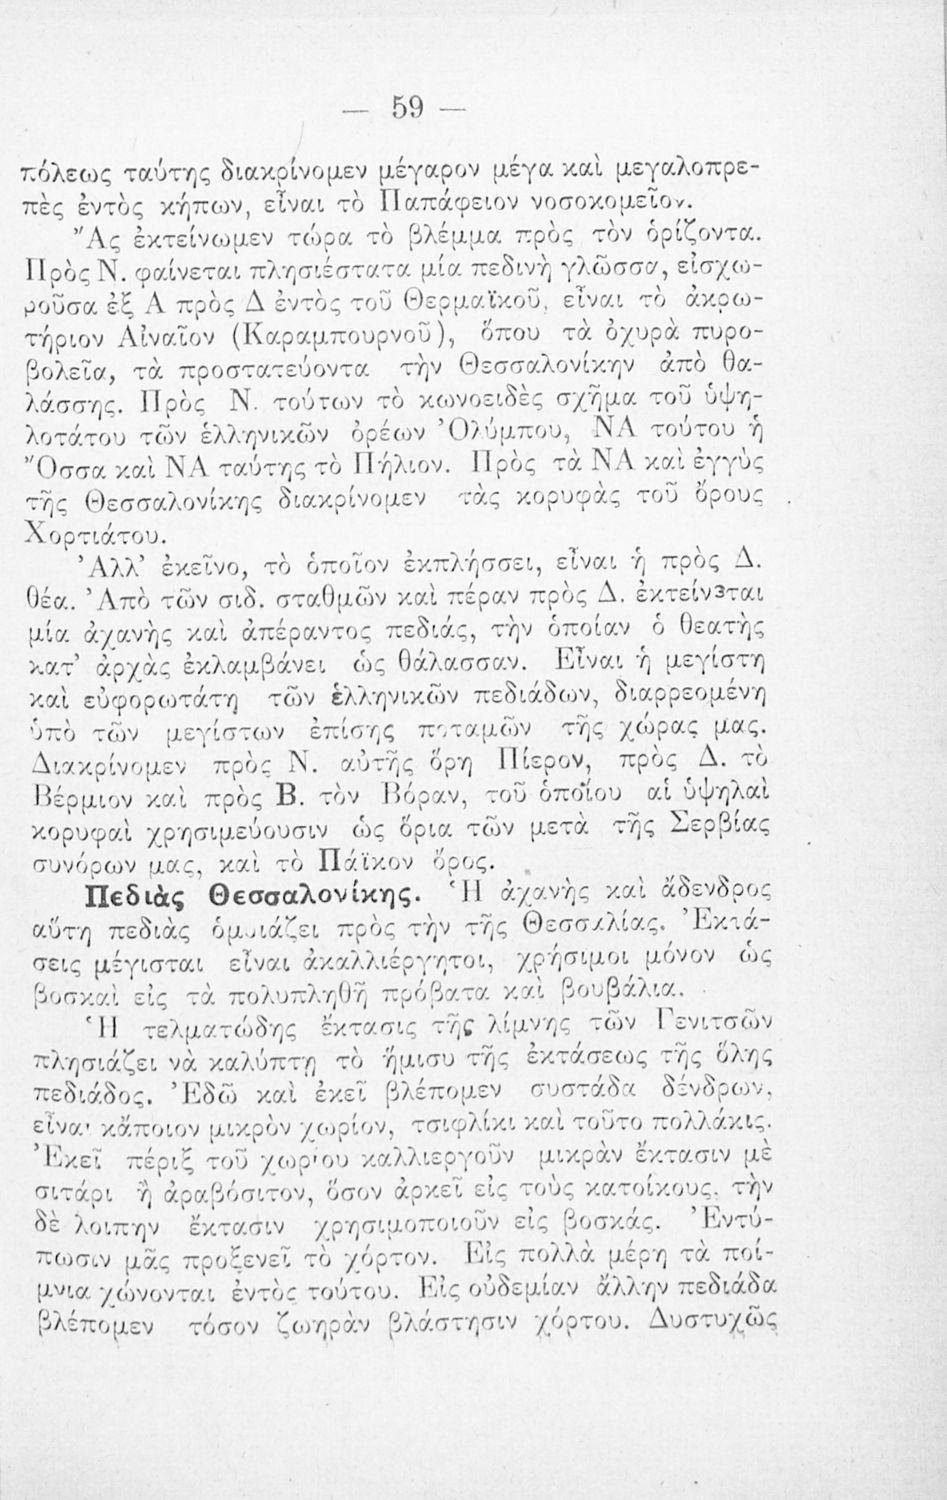 — 59 —
πόλεως ταύτης διακρίνομεν μέγαρον μέγα καὶ μεγαλοπρε-
πὲς ἐντὸς κήπων, εἶναι τὸ Παπάφειον νοσοκομεῖον.
Ἂς ἐκτείνωμεν τώρα τὸ βλέμμα πρὸς τὸν ὁρίζοντα.
Πρὸς Ν. φαίνεται πλησιέστατα μία πεδινὴ γλῶσσα, εἰσχω-
ροῦσα ἐξ Α πρὸς Δ ἐντὸς τοῦ Θερμαϊκοῦ, εἶναι τὸ ἀκρω-
τήριον Αἰναῖον (Καραμπουρνοῦ), ὅπου τὰ ὀχυρὰ πυρο-
βολεῖα, τὰ προστατεύοντα τὴν Θεσσαλονίκην ἀπὸ θα-
λάσσης. Πρὸς Ν. τούτων τὸ κωνοειδὲς σχῆμα τοῦ ὑψη-
λοτάτου τῶν ἑλληνικῶν ὀρέων Ὀλύμπου, ΝΑ τούτου ἡ
Ὄσσα καὶ ΝΑ ταύτης τὸ Πήλιον. Πρὸς τὰ ΝΑ καὶ ἐγγὺς
τῆς Θεσσαλονίκης διακρίνομεν τὰς κορυφὰς τοῦ ὄρους
Χορτιάτου.
Ἀλλ’ ἐκεῖνο, τὸ ὁποῖον ἐκπλήσσει, εἶναι ἡ πρὸς Δ.
θέα. Ἀπὸ τῶν σιδ. σταθμῶν καὶ πέραν πρὸς Δ. ἐκτείνεται
μία ἀχανὴς καὶ ἀπέραντος πεδιάς, τὴν ὁποίαν ὁ θεατὴς
κατ’ ἀρχὰς ἐκλαμβάνει ὡς θάλασσαν. Εἶναι ἡ μεγίστη
καὶ εὐφορωτάτη τῶν ἑλληνικῶν πεδιάδων, διαρρεομένη
ὑπὸ τῶν μεγίστων ἐπίσης ποταμῶν τῆς χώρας μας.
Διακρίνομεν πρὸς Ν. αὐτῆς ὄρη Πίερον, πρὸς Δ. τὸ
Βέρμιον καὶ πρὸς Β. τὸν Βόραν, τοῦ ὁποίου αἱ ὑψηλαὶ
κορυφαὶ χρησιμεύουσιν ὡς ὅρια τῶν μετὰ τῆς Σερβίας
συνόρων μας, καὶ τὸ Πάϊκον ὄρος.
Πεδιὰς Θεσσαλονίκης. Ἡ ἀχανὴς καὶ ἄδενδρος
αὕτη πεδιὰς ὁμοιάζει πρὸς τὴν τῆς Θεσσαλίας. Ἐκτά-
σεις μέγισται εἶναι ἀκαλλιέργητοι, χρήσιμοι μόνον ὡς
βοσκαὶ εἰς τὰ πολυπληθῆ πρόβατα καὶ βουβάλια.
Ἡ τελματώδης ἔκτασις τῆς λίμνης τῶν Γενιτσῶν
πλησιάζει νὰ καλύπτῃ τὸ ἥμισυ τῆς ἐκτάσεως τῆς ὅλης
πεδιάδος. Ἐδῶ καὶ ἐκεῖ βλέπομεν συστάδα δένδρων,
εἶναι κἄποιον μικρὸν χωρίον, τσιφλίκι καὶ τοῦτο πολλάκις.
Ἐκεῖ πέριξ τοῦ χωρίου καλλιεργοῦν μικρὰν ἔκτασιν μὲ
σιτάρι ἢ ἀραβόσιτον, ὅσον ἀρκεῖ εἰς τοὺς κατοίκους, τὴν
δὲ λοιπὴν ἔκτασιν χρησιμοποιοῦν εἰς βοσκάς. Ἐντύ-
πωσιν μᾶς προξενεῖ τὸ χόρτον. Εἰς πολλὰ μέρη τὰ ποί-
μνια χώνονται ἐντὸς τούτου. Εἰς οὐδεμίαν ἄλλην πεδιάδα
βλέπομεν τόσον ζωηρὰν βλάστησιν χόρτου. Δυστυχῶς